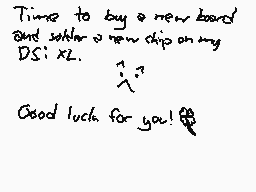 Time to buy a new board
and solder a new chip on my
DSi XL.
Good luck for you!